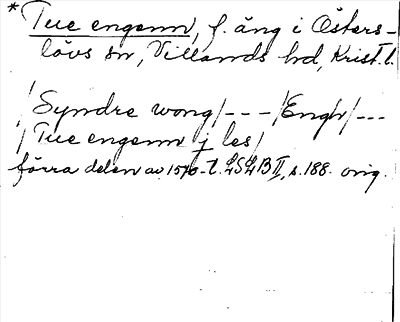 * Tue engenn, f. äng i Östers-
lövs sn, Villands hd, Krist. l.
/Syndre wong/---/Engh/---
/Tue engenn j les/
förra delen av 1570-t. LSLB II, s. 188. orig.